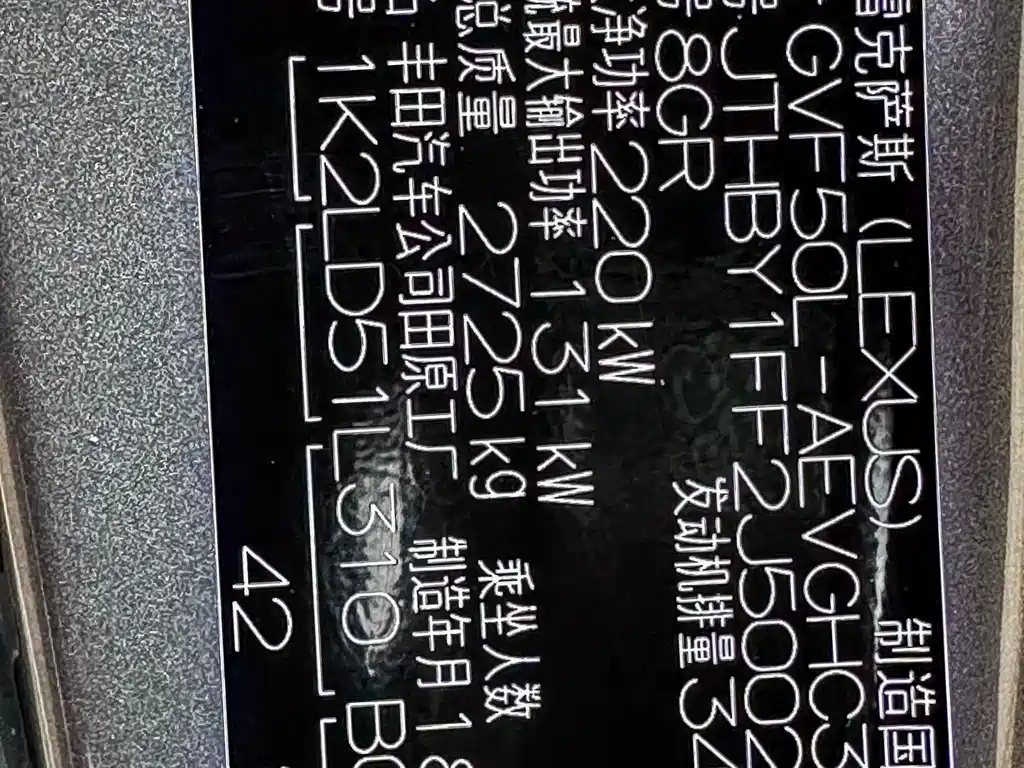 雷克萨斯 (LEXUS) 制造国
GVF50L-AEVGHC3
JTHBY1FF2J5002
8GR 发动机排量 34
净功率 220kW
最大输出功率 131kW
总质量 2725kg 乘坐人数
丰田汽车公司田原工厂 制造年月 18
1K2 LD51 L310 B
42